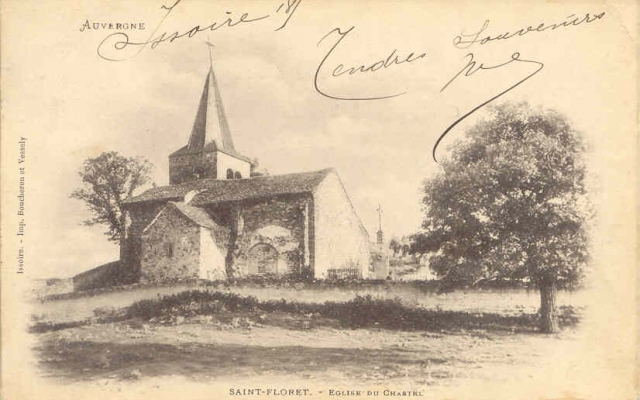 AUVERGNE
Issoire
Tendres
Souvenirs
Issoire. - Imp. Boucheron et Vessely
SAINT-FLORET. - EGLISE DU CHASTEL